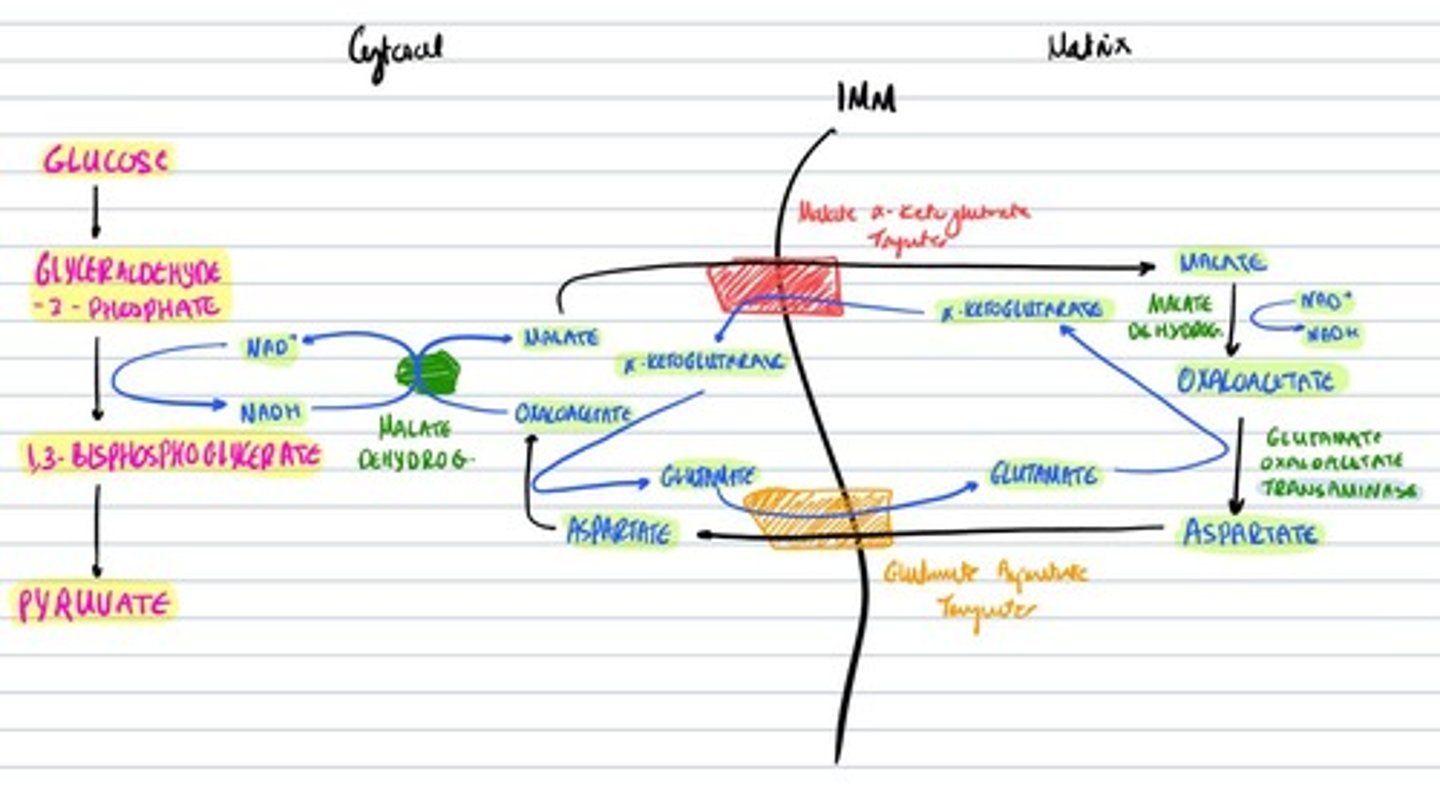 Cytosol
Matrix
IMM
GLUCOSE
GLYCERALDEHYDE
-3-PHOSPHATE
1,3-BISPHOSPHOGLYCERATE
PYRUVATE
NAD+
NADH
MALATE
DEHYDROG.
MALATE
α-KETOGLUTARATE
OXALOACETATE
GLUTAMATE
ASPARTATE
Malate α-Ketoglutarate
α-KETOGLUTARATE
GLUTAMATE
Glutamate Aspartate
MALATE
MALATE
DEHYDROG.
NAD+
NADH
OXALOACETATE
GLUTAMATE
OXALOACETATE
TRANSAMINASE
ASPARTATE